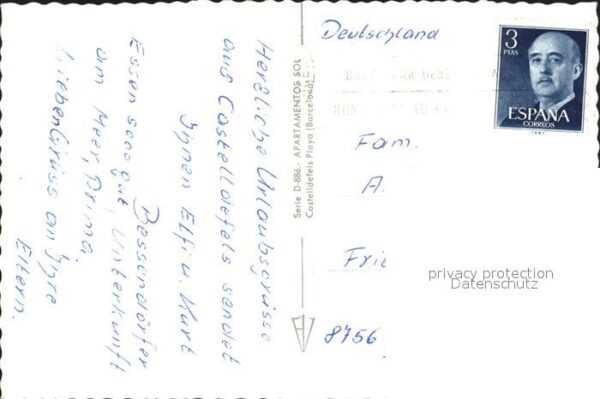 Herzliche Urlaubsgrüsse
aus Castelldefels sendet
Ihnen Elfi u. Kurt
Bessendörfer
Essen sooo gut, Unterkunft
am Meer, Prima
Lieben Gruss an Ihre
Eltern.
Serie D-886.- APARTAMENTOS SOL
Castelldefels Playa (Barcelona)
Deutschland
3
PTAS
ESPAÑA
CORREOS
Fam.
A.
Frie
8756
privacy protection
Datenschutz